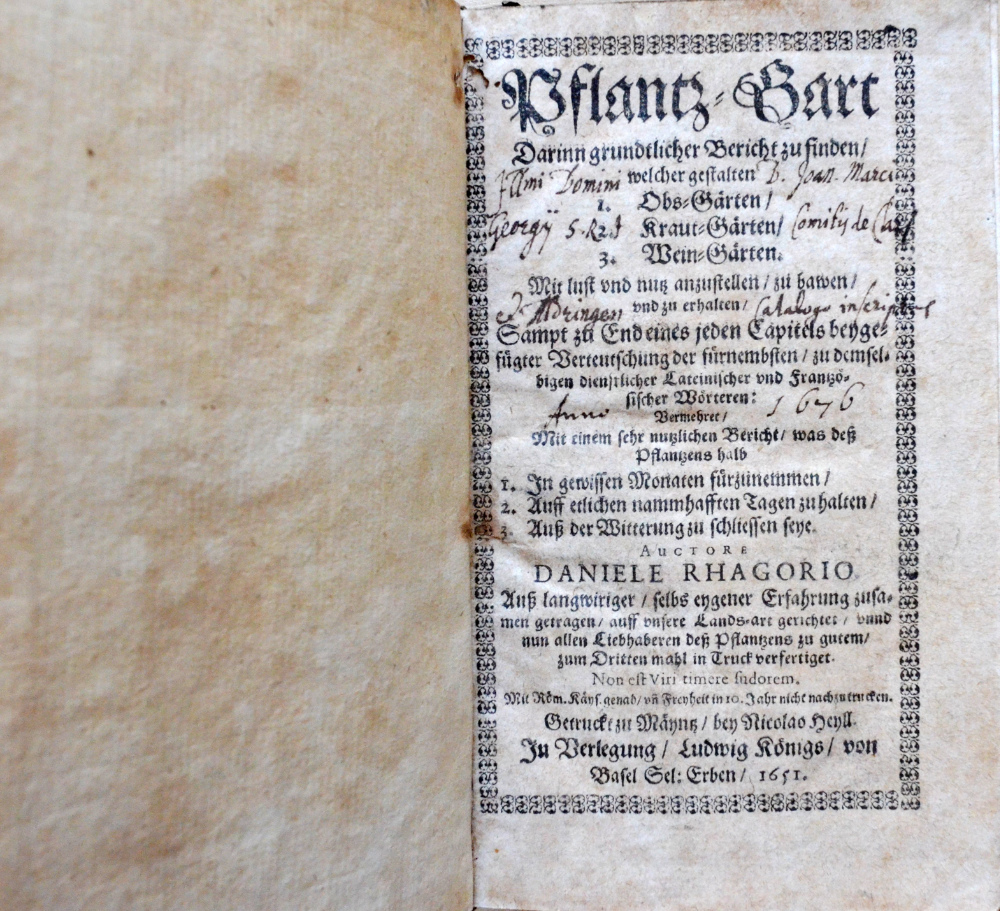 Pflantz-Gart
Darinn grundtlicher Bericht zu finden/
Illmi Domini welcher gestalten D. Joan. Marci
1. Obs-Gärten/
Georgÿ S. R. I 2. Kraut-Gärten/ Comitis de
3. Wein-Gärten.
Mit lust vnd nutz anzustellen/ zu bawen/
Aldringen vnd zu erhalten/ Catalogo inscriptus
Sampt zu End eines jeden Capitels beyge-
fügter Verteutschung der fürnembsten/ zu demsel-
bigen dienstlicher Lateinischer vnd Frantzö-
sischer Wörteren:
Anno Vermehret/ 1676
Mit einem sehr nutzlichen Bericht/ was deß
Pflantzens halb
1. In gewissen Monaten fürzunemmen/
2. Auff etlichen nammhafften Tagen zu halten/
3. Auß der Witterung zu schliessen seye.
AUCTORE
DANIELE RHAGORIO
Auß langwiriger/ selbs eygener Erfahrung zusa-
men getragen/ auff vnsere Lands-art gerichtet/ vnnd
nun allen Liebhaberen deß Pflantzens zu gutem/
zum Dritten mahl in Truck verfertiget.
Non est Viri timere sudorem.
Mit Röm. Käys. genad/ vn̄ Freyheit in 10. Jahr nicht nachzutrucken.
Getruckt zu Mäyntz/ bey Nicolao Heyll.
In Verlegung/ Ludwig Königs/ von
Basel Sel: Erben/ 1651.